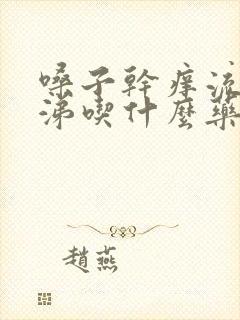 嗓子幹癢流
涕喫什麼藥
趙燕